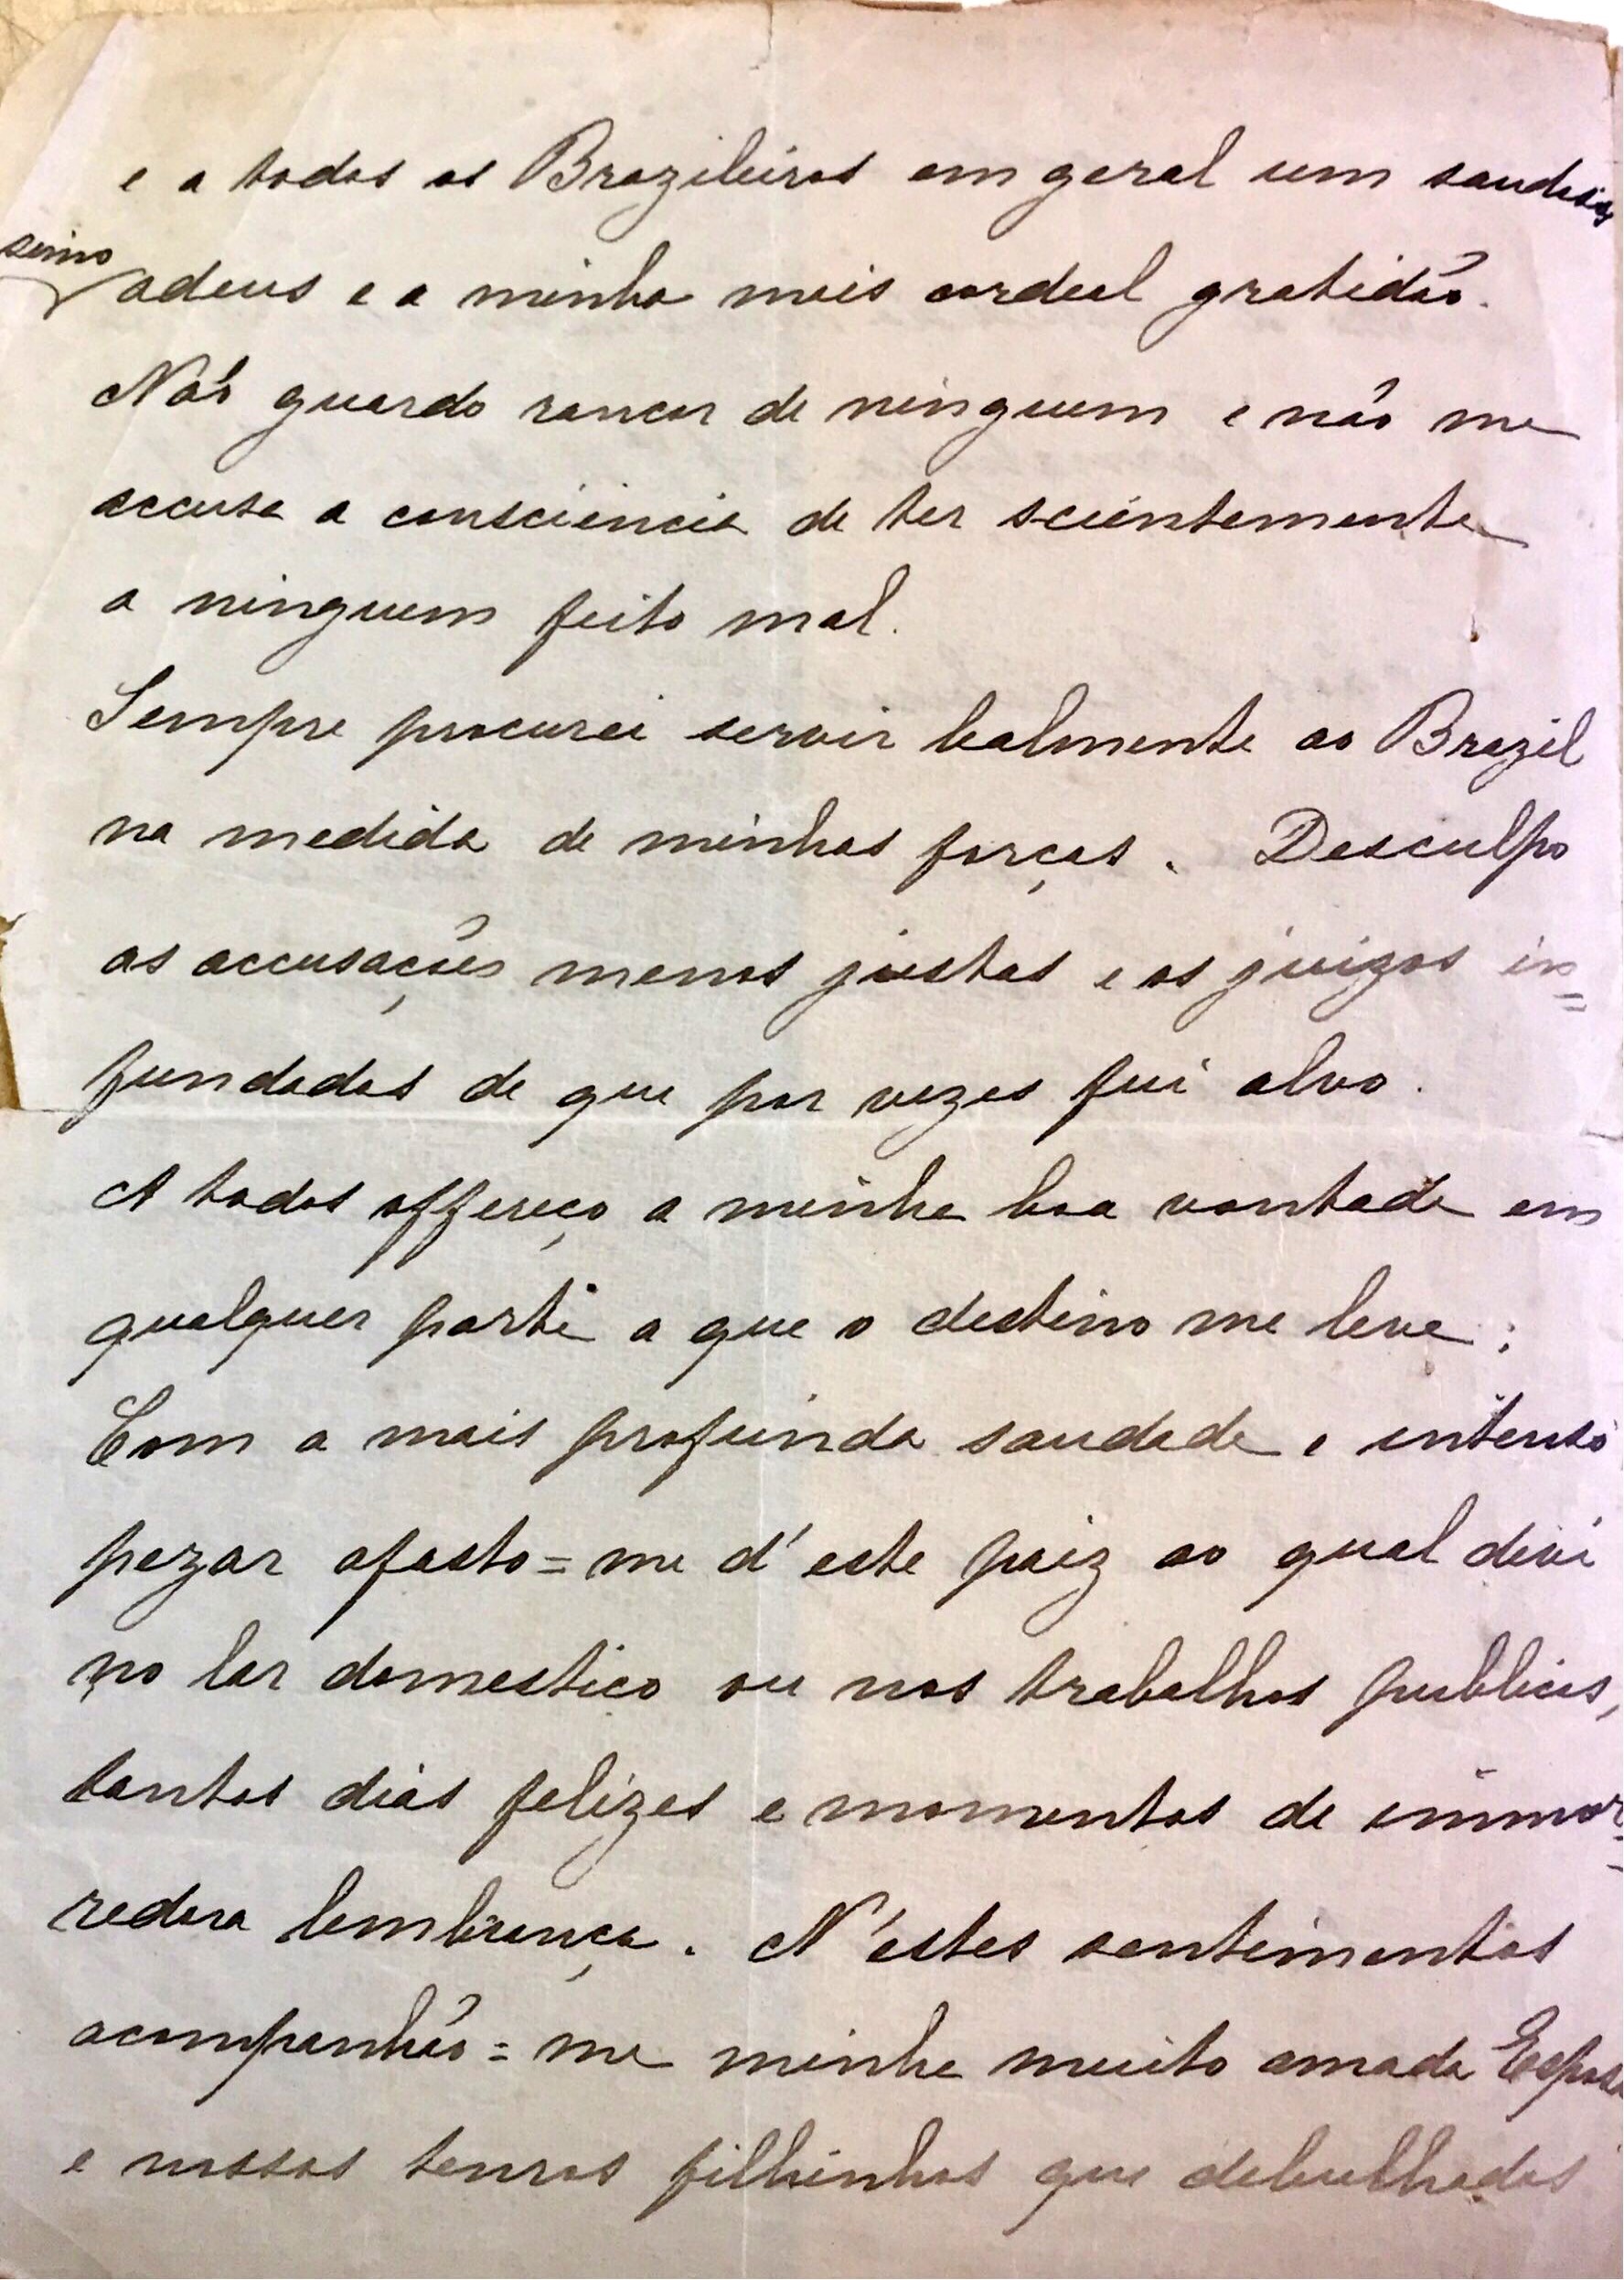 e a todos os Brazileiros em geral um saudosis
simo adeus e a minha mais cordeal gratidão.
Não guardo rancor de ninguem e não me
accusa a consciencia de ter scientemente
a ninguem feito mal.
Sempre procurei servir lealmente ao Brazil
na medida de minhas forças. Desculpo
as accusações menos justas e os juizos in=
fundados de que por vezes fui alvo.
A todos offereço a minha boa vontade em
qualquer parte a que o destino me leve;
Com a mais profunda saudade e intenso
pezar afasto=me d'este paiz ao qual devi
no lar domestico ou nos trabalhos publicos,
tantos dias felizes e momentos de immor=
redora lembrança. N'estes sentimentos
acompanhão=me minha muito amada Esposa
e nossos tenros filhinhos que debulhados